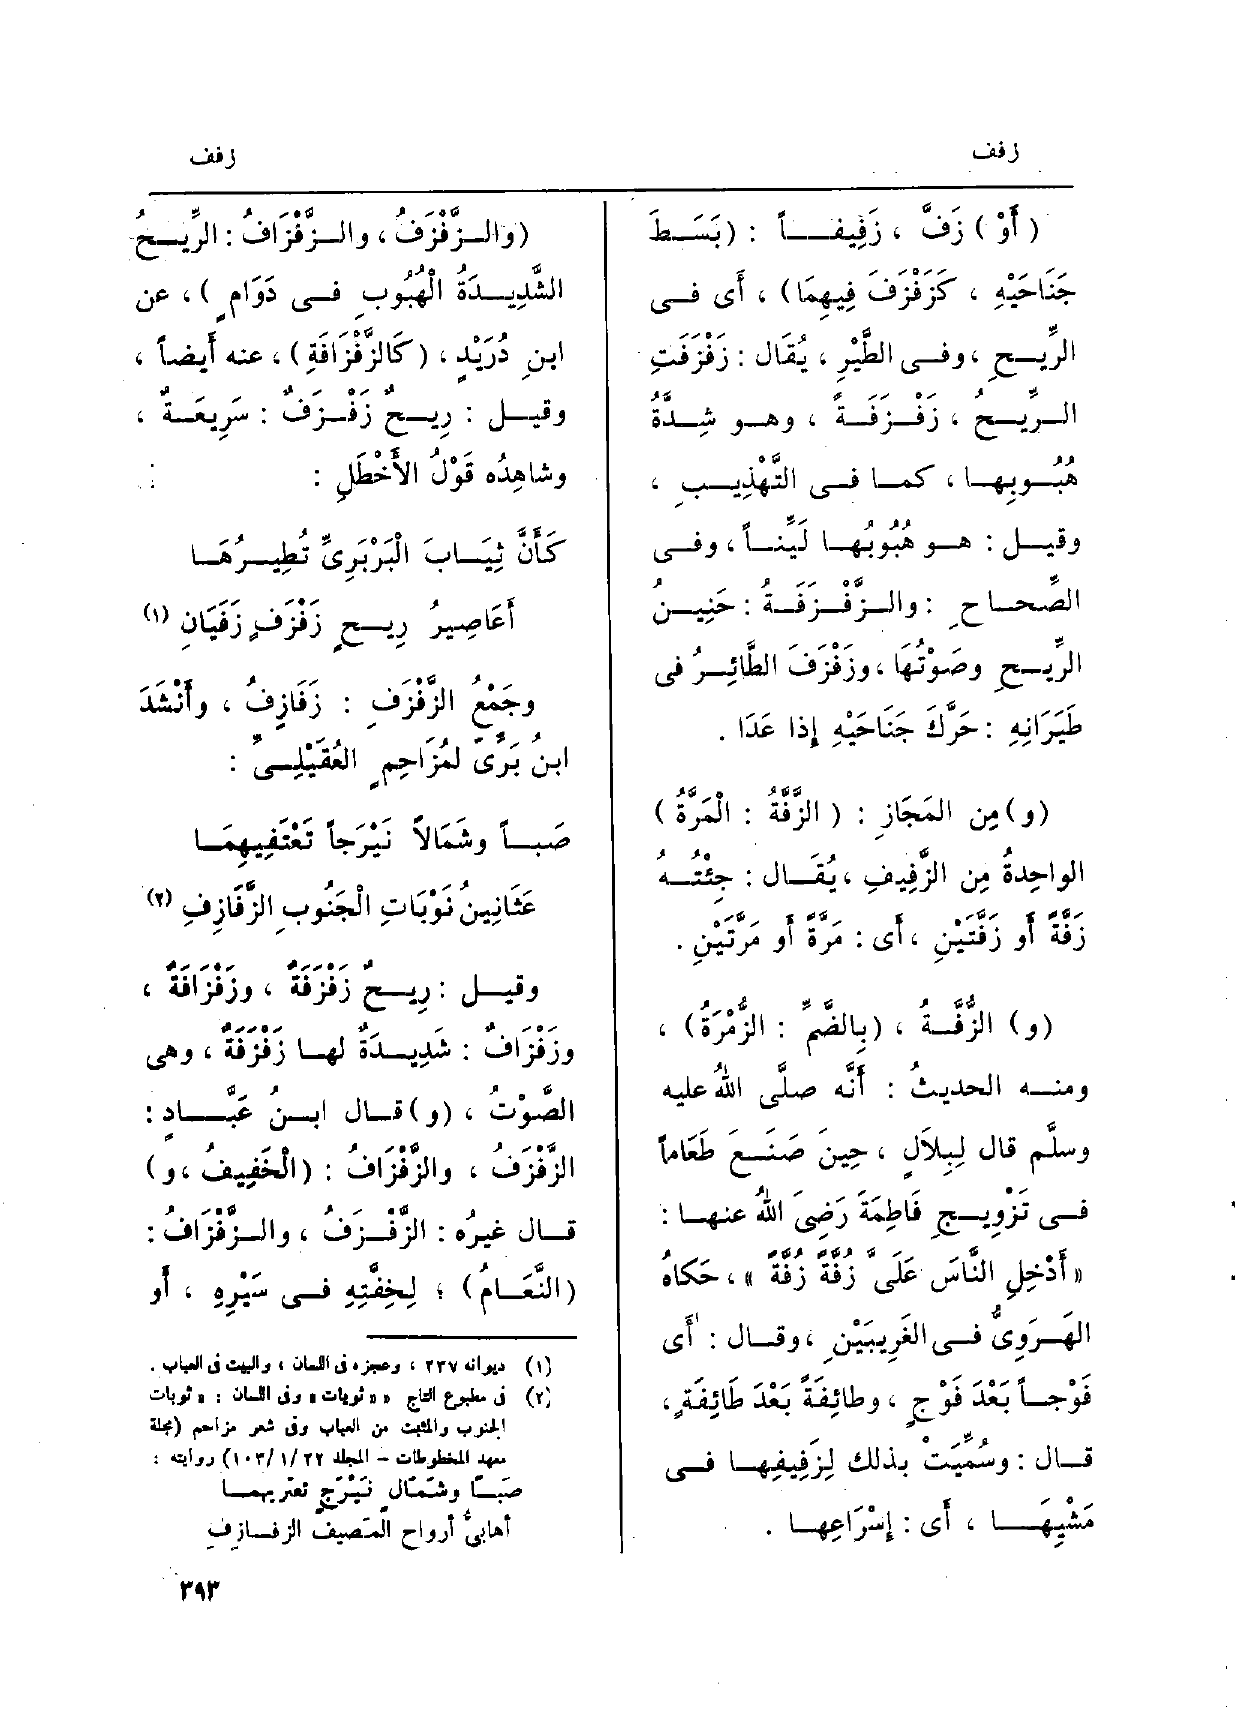 زفف
زفف
(أَوْ) زَفَّ ، زَفِيفاً : (بَسَطَ
جَنَاحَيْهِ ، كَزَفْزَفَ فِيهِمَا) ، أَى فى
الرِّيحِ ، وفى الطَّيْرِ ، يُقَال : زَفْزَفَتِ
الرِّيحُ ، زَفْزَفَةً ، وهو شِدَّةُ
هُبُوبِهَا ، كما فى التَّهْذِيبِ ،
وقيل : هو هُبُوبُهَا لَيِّناً ، وفى
الصِّحاحِ : والزَّفْزَفَةُ : حَنِينُ
الرِّيحِ وصَوْتُهَا ، وزَفْزَفَ الطَّائِرُ فى
طَيَرَانِهِ : حَرَّكَ جَنَاحَيْهِ إِذا عَدَا .
(و) مِن المَجَازِ : (الزَّفَّةُ : الْمَرَّةُ)
الواحِدةُ مِن الزَّفِيفِ ، يُقَال : جِئْتُهُ
زَفَّةً أو زَفَّتَيْنِ ، أَى : مَرَّةً أو مَرَّتَيْنِ .
(و) الزُّفَّةُ ، (بِالضَّمِّ : الزُّمْرَةُ) ،
ومنه الحديثُ : أَنَّه صلَّى اللهُ عليه
وسلَّم قال لِبِلاَلٍ ، حِينَ صَنَعَ طَعَاماً
فى تَزْوِيجِ فَاطِمَةَ رَضِىَ اللهُ عنها :
« أَدْخِلِ النَّاسَ عَلَىَّ زُفَّةً زُفَّةً » ، حَكاهُ
الهَرَوِىُّ فى الغَرِيبَيْنِ ، وقال : أَى
فَوْجاً بَعْدَ فَوْجٍ ، وطائِفَةً بَعْدَ طَائِفَةٍ ،
قال : وسُمِّيَتْ بذلك لِزَفِيفِها فى
مَشْيِهَا ، أَى : إِسْرَاعِها .
(والزَّفْزَفُ ، والزَّفْزَافُ : الرِّيحُ
الشَّدِيدَةُ الْهُبُوبِ فى دَوَامٍ) ، عن
ابنِ دُرَيْدٍ ، (كَالزَّفْزَافَةِ) ، عنه أَيضاً ،
وقيل : رِيحٌ زَفْزَفٌ : سَرِيعَةٌ ،
وشاهِدُه قَوْلُ الأَخْطَلِ :
كَأَنَّ ثِيَابَ الْبَرْبَرِىِّ تُطِيرُهَا
أَعَاصِيرُ رِيحٍ زَفْزَفٍ زَفَيَانِ (١)
وجَمْعُ الزَّفْزَفِ : زَفَازِفُ ، وأَنْشَدَ
ابنُ بَرِّىَ لمُزَاحِمٍ العُقَيْلِىِّ :
صَباً وشَمَالاً نَيْرَجاً تَعْتَفِيهِمَا
عَثَانِينُ نَوْبَاتِ الْجَنُوبِ الزَّفَازِفِ (٢)
وقيل : رِيحٌ زَفْزَفَةٌ ، وزَفْزَافَةٌ ،
وزَفْزَافٌ : شَدِيدَةٌ لها زَفْزَفَةٌ ، وهى
الصَّوْتُ ، (و) قال ابنُ عَبَّادٍ :
الزَّفْزَفُ ، والزَّفْزَافُ : (الْخَفِيفُ ، و)
قال غيرُه : الزَّفْزَفُ ، والزَّفْزَافُ :
(النَّعَامُ) ؛ لِخِفَّتِهِ فى سَيْرِهِ ، أو
(١) ديوانه ٢٣٧ ، وعجزه فى اللسان ، والبيت فى العباب .
(٢) فى مطبوع التاج « ثويات » وفى اللسان : « ثوبات
الجنوب والمثبت من العباب وفى شعر مزاحم (مجلة
معهد المخطوطات – المجلد ٢٢ /١ /١٠٣) روايته :
صَباً وشَمَالٍ نَيْرَجٍ تعتريهما
أهابىُّ أرواح المَصيف الزفازف
٣٩٣